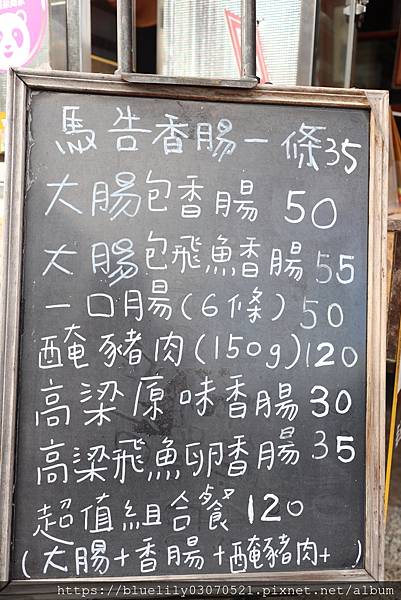 馬告香腸一條35
大腸包香腸 50
大腸包飛魚香腸 55
一口腸(6條) 50
醃豬肉(150g)120
高梁原味香腸 30
高梁飛魚卵香腸 35
超值組合餐 120
(大腸+香腸+醃豬肉+ )
https://bluelily03070521.pixnet.net/album